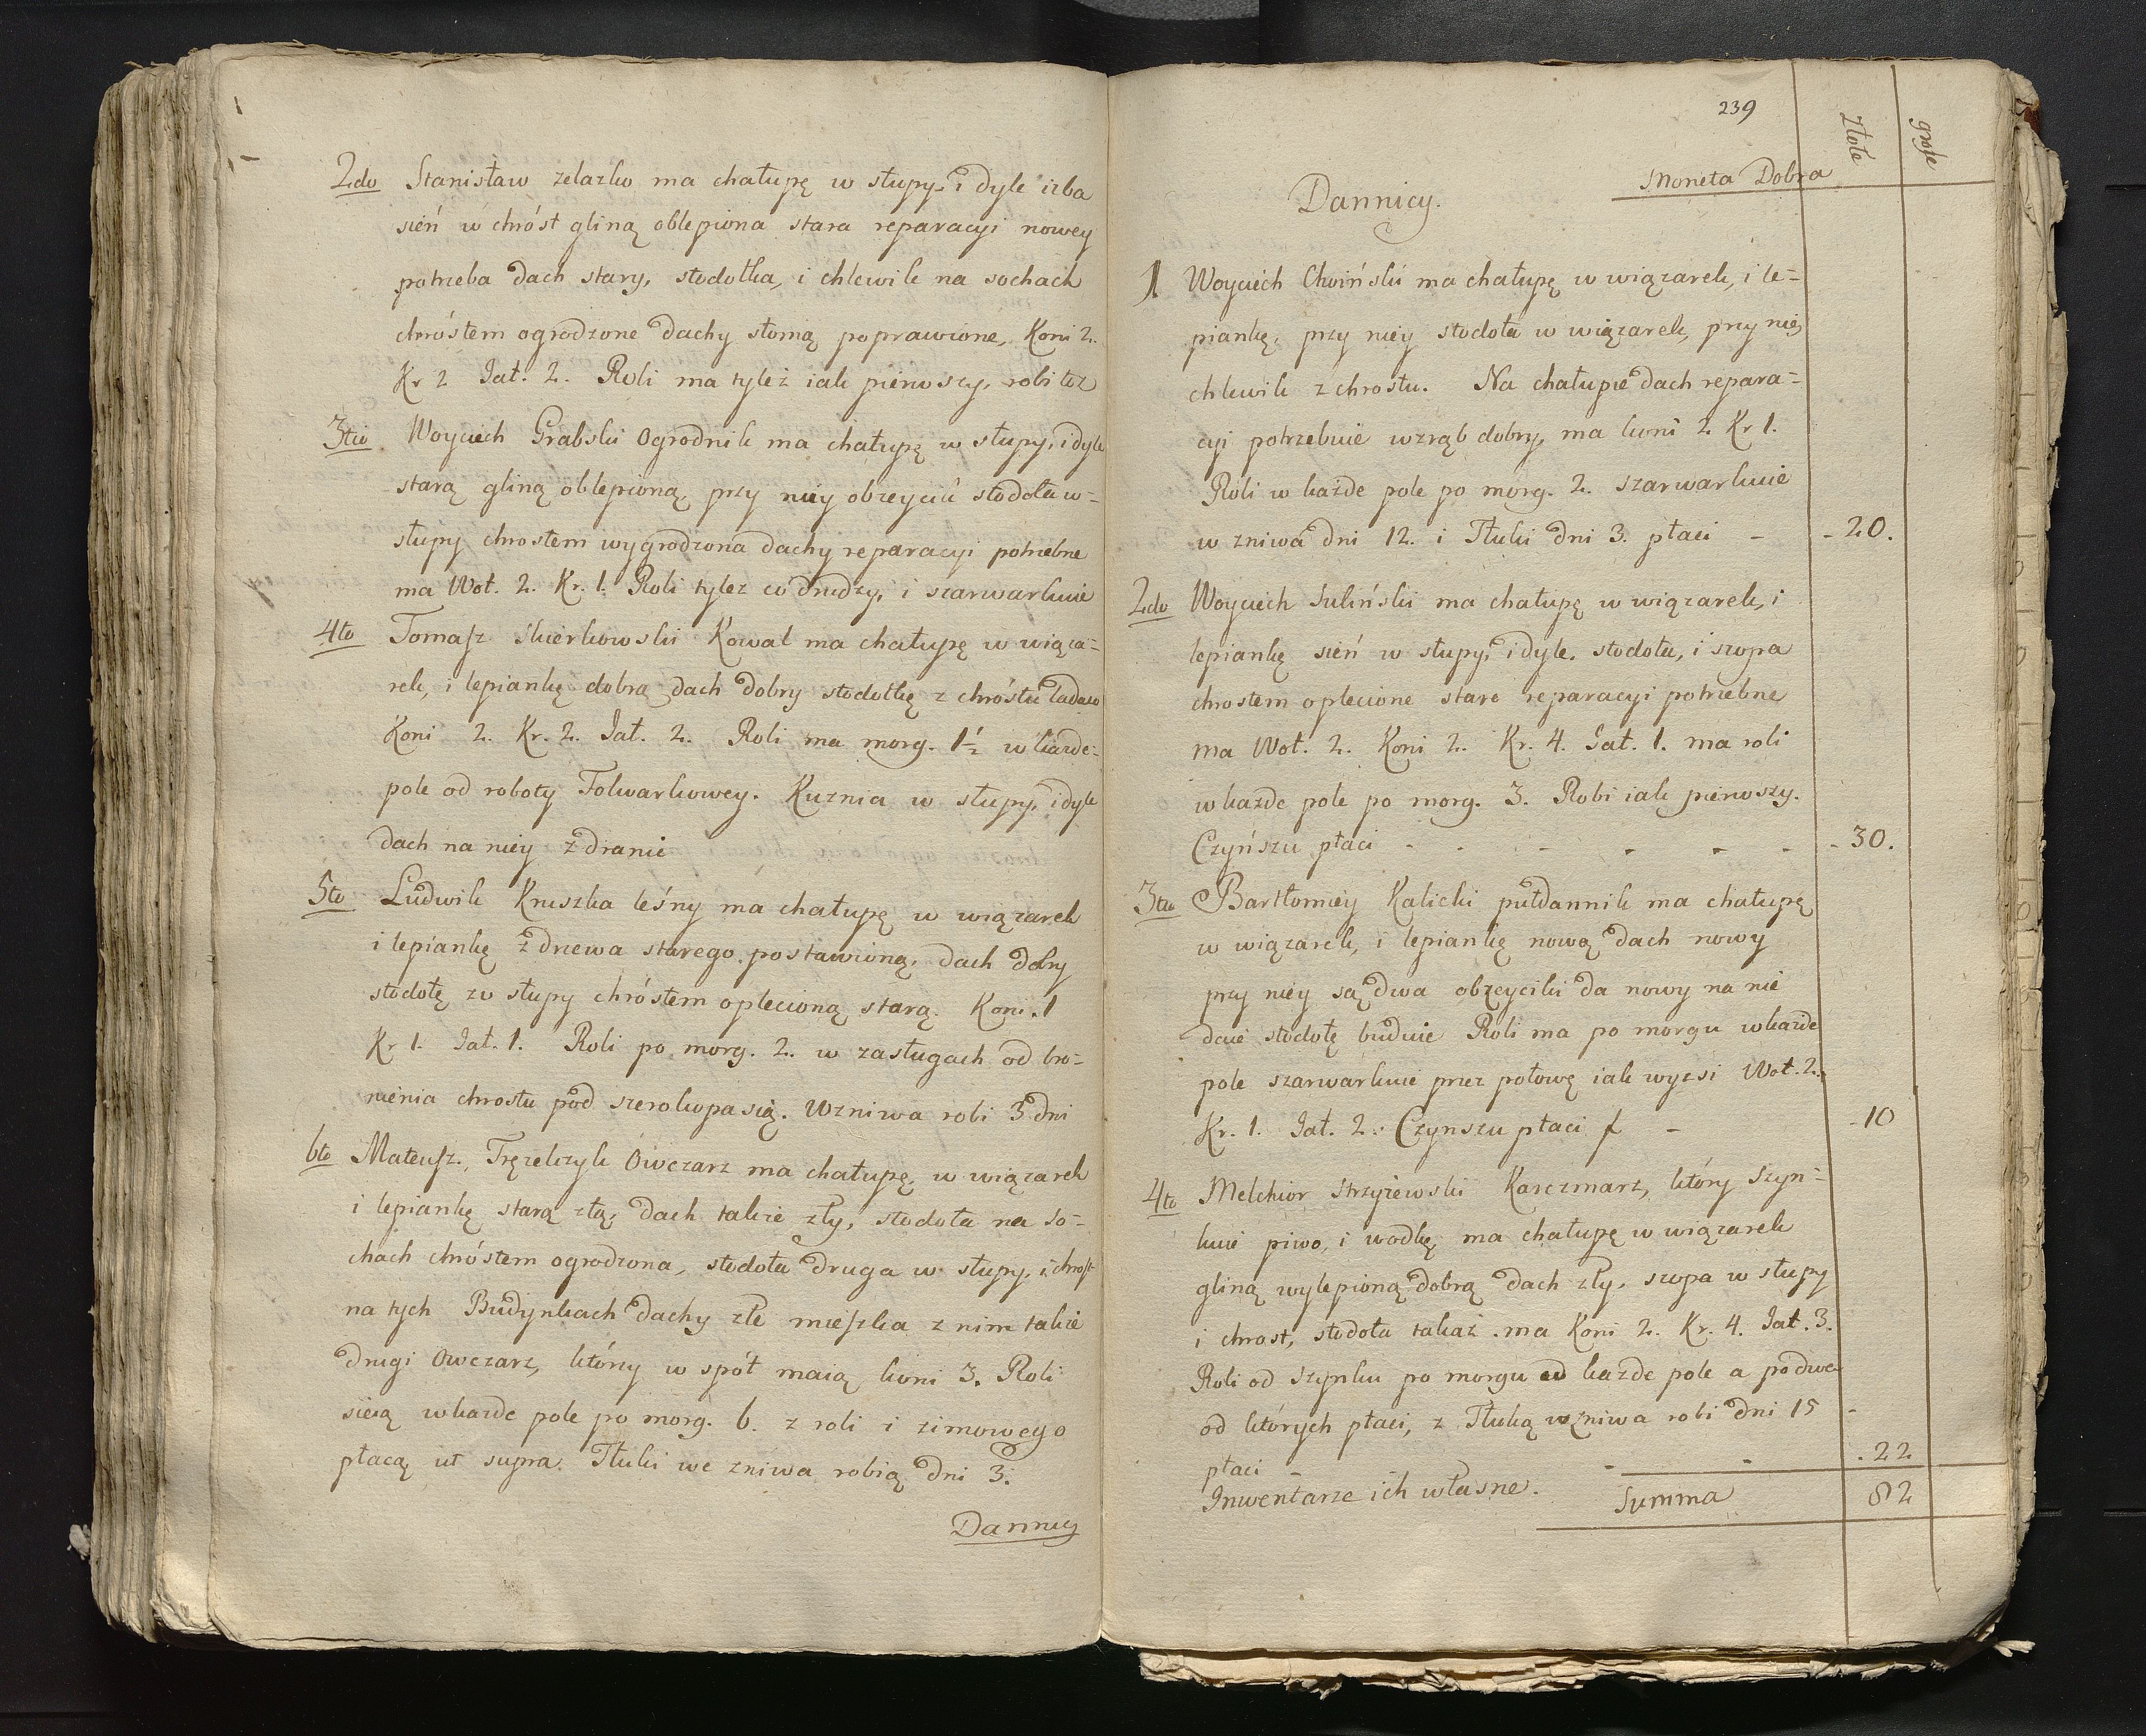 2do Stanisław zelazko ma chałupę w słupy, i dyle izba
sień w chróst gliną oblepiona stara reparacyi nowey
potrzeba dach stary, stodołka, i chlewik na sochach
chróstem ogrodzone dachy słomą poprawione, Koni 2.
Kr 2 Jał. 2. Roli ma tyleż iak pierwszy, robi też
3tio Woyciech Grabski Ogrodnik ma chałupę w słupy, i dyle
starą gliną oblepioną, przy niey obzeyście stodoła w-
słupy chrostem wygrodzona dachy reparacyi potrzebne
ma Woł. 2. Kr. 1. Roli tylez co drudzy, i szarwarkuie
4to Tomasz Skierkowski Kowal ma chałupę w wiąza-
rek, i lepiankę dobrą dach dobry stodołkę z chróstu ladaco
Koni 2. Kr. 2. Jał. 2. Roli ma morg. 1½ w kazde-
pole od roboty Folwarkowey. Kuznia w słupy, i dyle
dach na niey z dranic
5to Ludwik Kruszka leśny ma chałupę w wiązarek
i lepiankę z drzewa starego postawioną, dach dobry
stodołę w słupy chróstem oplecioną starą. Koni. 1
Kr 1. Jał. 1. Roli po morg. 2. w zasługach od bro-
nienia chrostu pod szerokopasią. W zniwa robi 3 dni
6to Mateusz Tręzelczyk Owczarz ma chałupę w wiązarek
i lepiankę starą złą, dach takze zły, stodoła na so-
chach chróstem ogrodzona, stodoła druga w słupy, i chrost
na tych Budynkach dachy złe mieszka z nim takze
drugi Owczarz, którzy w spół maią koni 3. Roli
sieią w kazde pole po morg. 6. z roli i zimowego
płacą ut supra. Tłuki we zniwa robią dni 3.
Dannicy
239
złote
grosze
Moneta Dobra
Dannicy.
1 Woyciech Choiński ma chałupę w wiązarek, i le-
piankę, przy niey stodoła w wiązarek, przy niey
chlewik z chrostu. Na chałupie dach repara-
cyi potrzebuie wzrąb dobry, ma koni 2 Kr 1.
Roli w każde pole po morg. 2. szarwarkuie
w zniwa dni 12. i Tłuki dni 3. płaci - - 20.
2do Woyciech Suliński ma chałupę w wiązarek, i
lepiankę sień w słupy, i dyle, stodoła, i szopa
chrostem oplecione stare reparacyi potrzebne
ma Woł. 2. Koni 2. Kr. 4. Jał. 1. ma roli
w kazde pole po morg. 3. Robi iak pierwszy.
Czyńszu płaci - - - - - - - 30.
3tio Bartłomiey Kalicki pułdannik ma chałupę
w wiązarek, i lepiankę nową dach nowy
przy niey są dwa obzeyciki da nowy na nie
daie stodołę buduie Roli ma po morgu w kazde
pole szarwarkuie przez połowę iak wyzsi Woł. 2.
Kr. 1. Jał. 2. Czynszu płaci f - - 10
4to Melchior Strzyżewski Karczmarz, który szyn-
kuie piwo, i wodkę, ma chałupę w wiązarek
gliną wylepioną dobrą dach zły, szopa w słupy
i chrost, stodoła takaż, ma Koni 2. Kr. 4. Jał. 3.
Roli od szynku po morgu w kazde pole a po dwa
od których płaci, z Tłuką w zniwa robi dni 15 -
płaci - - - . 22
Inwentarze ich własne. Summa 82